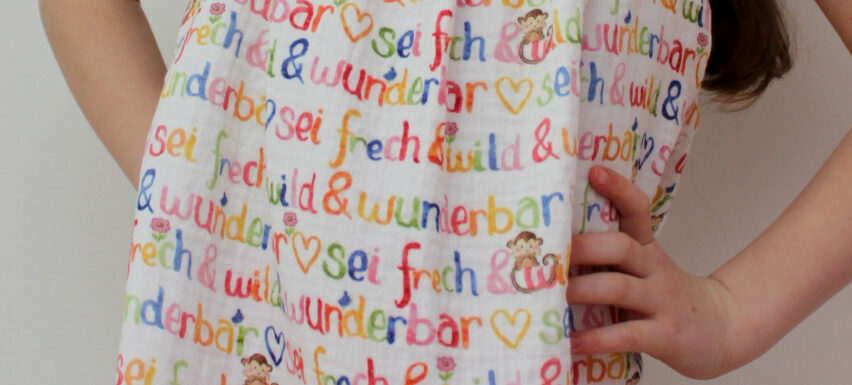 wunderbar ♡ sei frech & wild
frech & wunderbar
& wunderbar ♡ sei frech & wild &
wunderbar sei frech & wild & wunderbar
sei frech wild & wunderbar
& wunderbar ♡ sei frech & wild
frech & wild wunderbar ♡ sei
wunderbar ♡ sei frech & wild &
sei